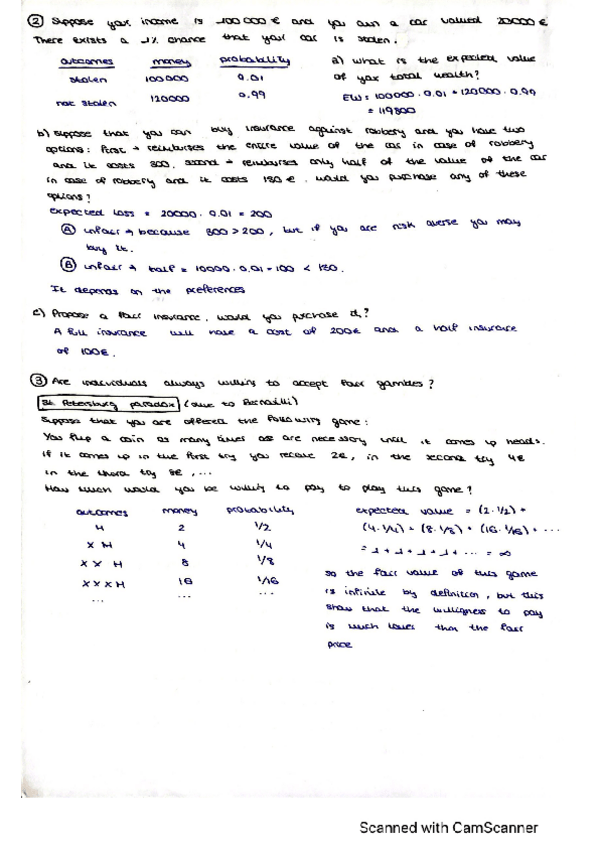 ② Suppose your income is 100 000 € and you own a car valued 20000 €
There exists a 1% chance that your car is stolen.
outcomes money probability
stolen 100000 0.01
not stolen 120000 0.99
a) what is the expected value
of your total wealth?
EW = 100000 · 0.01 + 120000 · 0.99
= 119800
b) Suppose that you can buy insurance against robbery and you have two
options: first → reimburses the entire value of the car in case of robbery
and it costs 300. second → reimburses only half of the value of the car
in case of robbery and it costs 130 €. would you purchase any of these
options?
expected loss = 20000 · 0.01 = 200
Ⓐ unfair → because 300 > 200, but if you are risk averse you may
buy it.
Ⓑ unfair → half = 10000 · 0.01 = 100 < 130.
It depends on the preferences
c) Propose a fair insurance. would you purchase it?
A full insurance will have a cost of 200€ and a half insurance
of 100€.
③ Are individuals always willing to accept fair gambles?
St. Petersburg paradox (due to Bernoulli)
Suppose that you are offered the following game:
You flip a coin as many times as are necessary until it comes up heads.
if it comes up in the first try you receive 2€, in the second try 4€
in the third try 8€, ...
How much would you be willing to pay to play this game?
outcomes money probability
H 2 1/2
X H 4 1/4
X X H 8 1/8
X X X H 16 1/16
... ... ...
expected value = (2 · 1/2) +
(4 · 1/4) + (8 · 1/8) + (16 · 1/16) + ...
= 1 + 1 + 1 + 1 + ... = ∞
so the fair value of this game
is infinite by definition, but this
show that the willigness to pay
is much lower than the fair
price
Scanned with CamScanner